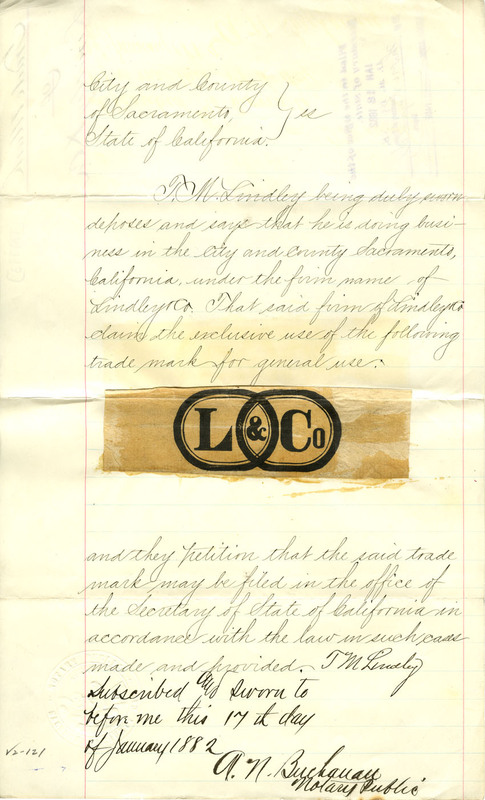 City and County
of Sacramento, } ss
State of California.
T. M. Lindley being duly sworn
deposes and says that he is doing busi-
ness in the City and County Sacramento,
California, under the firm name of
Lindley & Co. That said firm of Lindley & Co
claim the exclusive use of the following
trade mark for general use.
L & Co
and they petition that the said trade
mark may be filed in the office of
the Secretary of State of California in
accordance with the law in such cases
made and provided. T M Lindley
Subscribed and Sworn to
before me this 17th day
of January 1882
A. N. Buchanan
Notary Public
V2-121